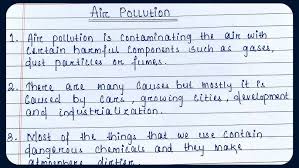 Air Pollution
1. Air pollution is contaminating the air with
certain harmful components such as gases,
dust particles or fumes.
2. There are many causes but mostly it is
caused by cars, growing cities, development
and industrialization.
3. Most of the things that we use contain
dangerous chemicals and they make
atmosphere dirtier.